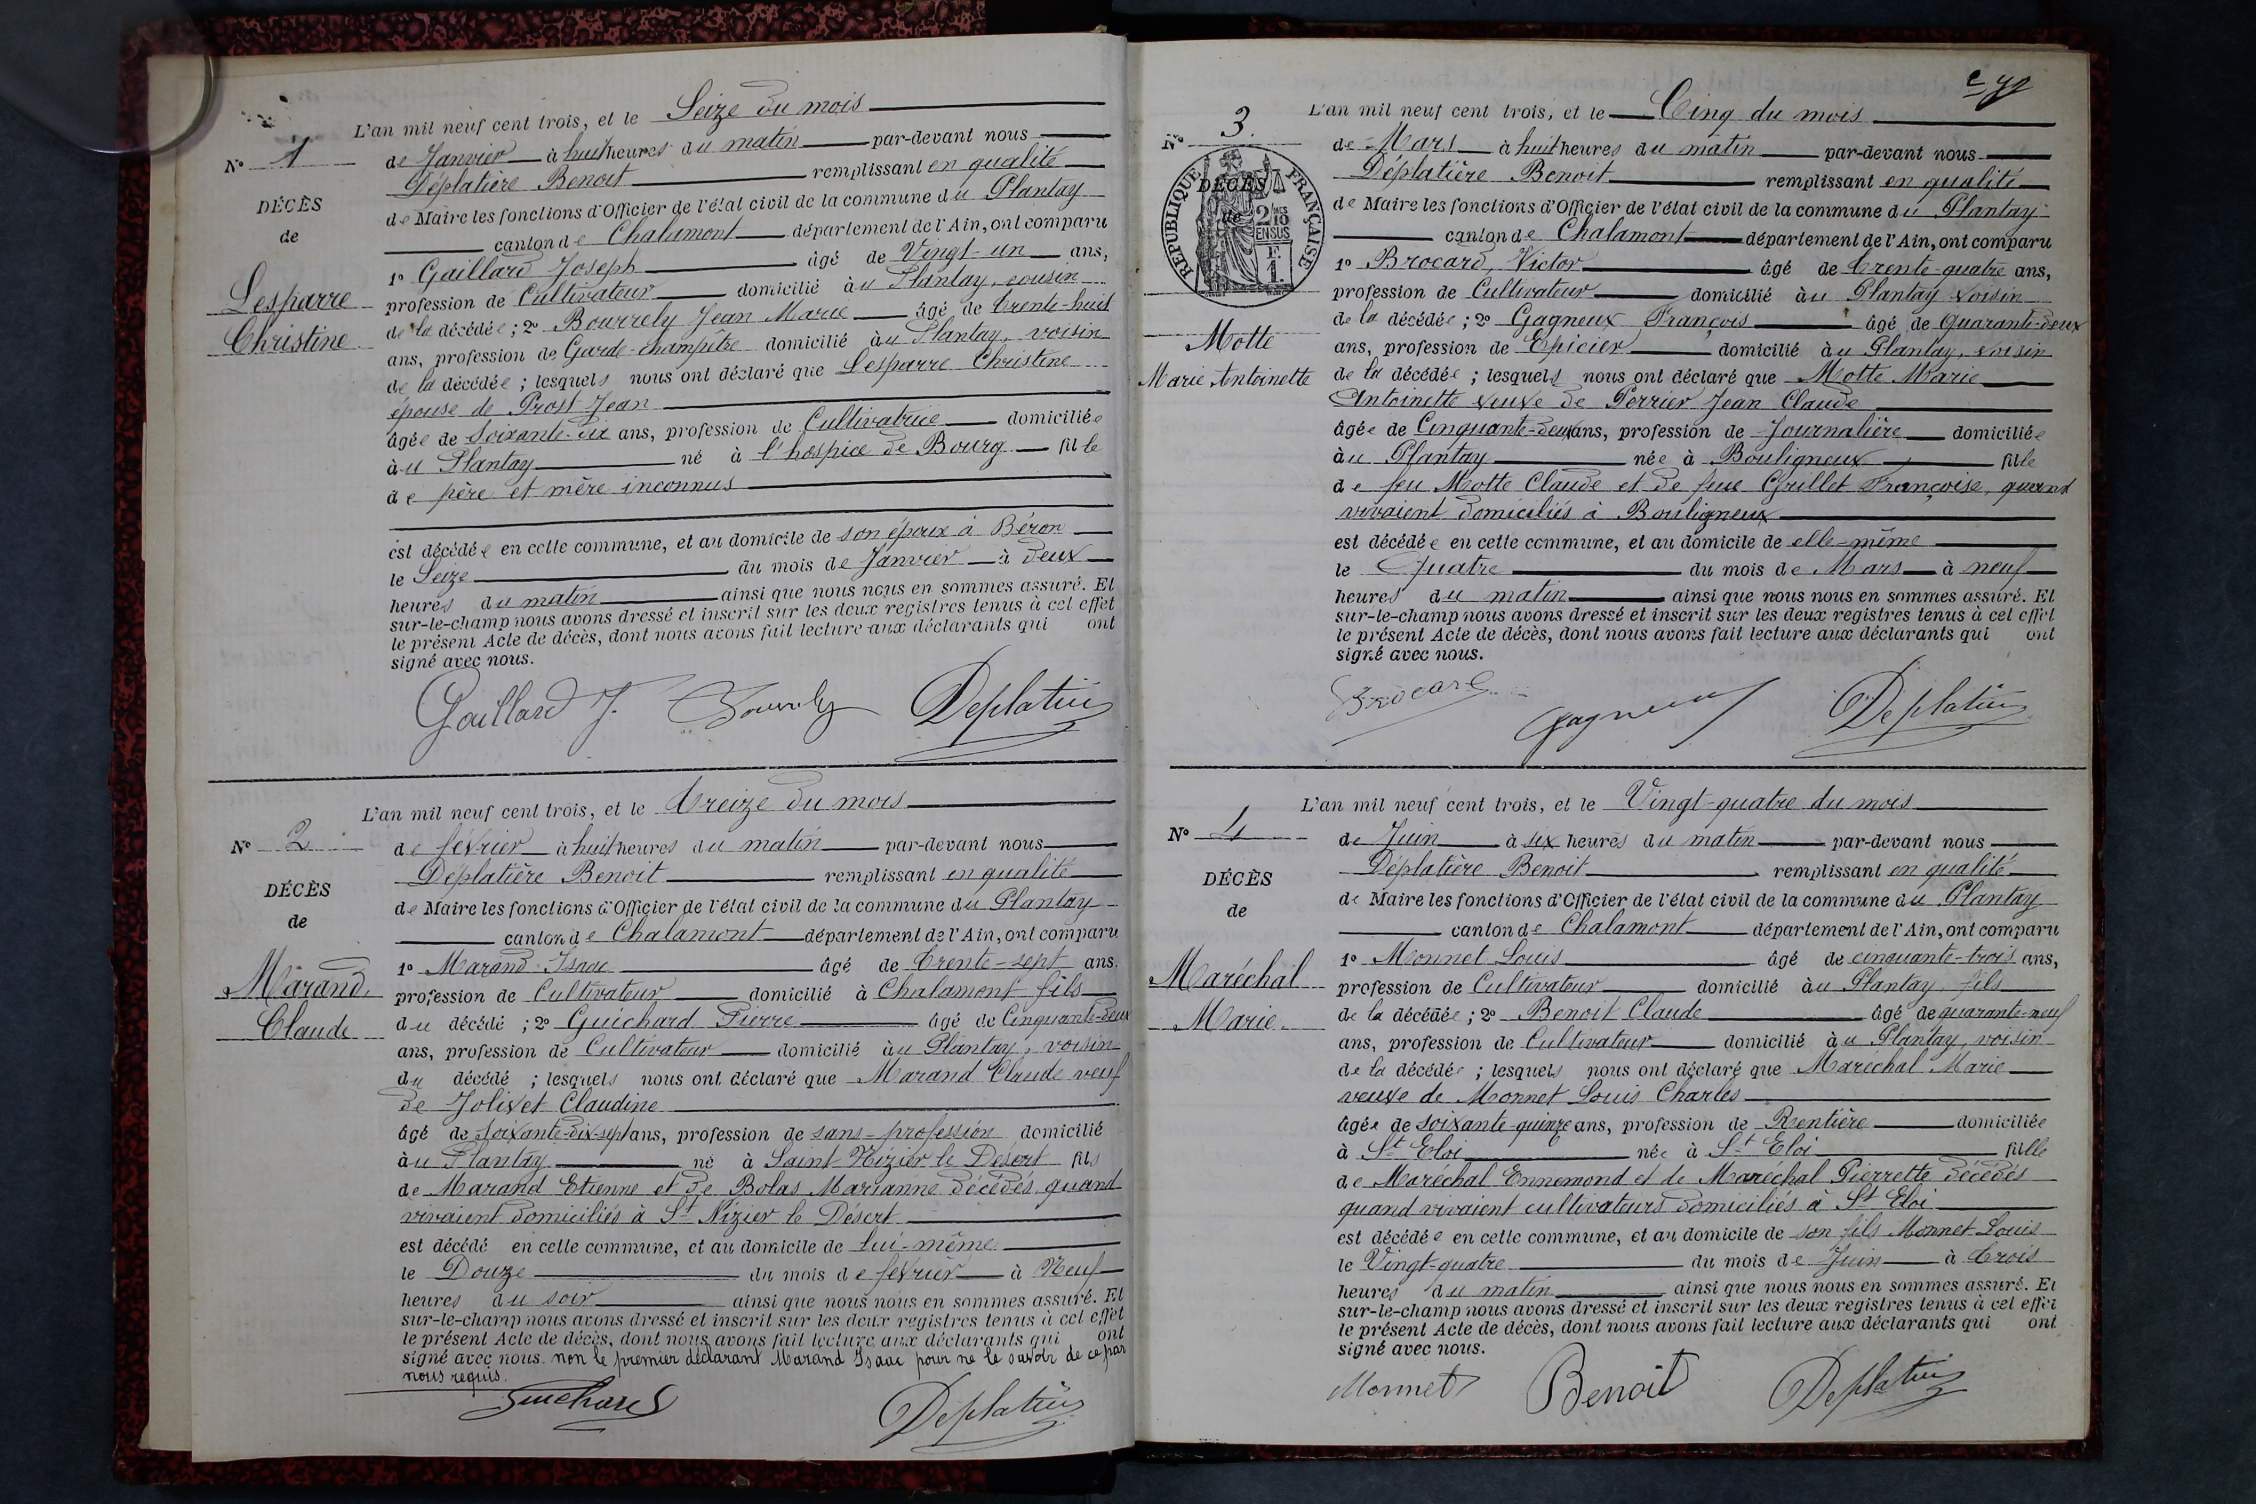 L'an mil neuf cent trois, et le Seize du mois
N° 1
de Janvier à huit heures du matin par-devant nous
Déplatière Benoit remplissant en qualité
DÉCÈS
de Maire les fonctions d'Officier de l'état civil de la commune du Plantay
de
canton de Chalamont département de l'Ain, ont comparu
1° Gaillard Joseph âgé de Vingt-un ans,
Lesparre
profession de Cultivateur domicilié au Plantay, cousin
Christine
de la décédée ; 2° Bourrely Jean Marie âgé de trente-huit
ans, profession de Garde-champêtre domicilié au Plantay, voisin
de la décédée ; lesquels nous ont déclaré que Lesparre Christine
épouse de Prost Jean
âgée de Soixante-dix ans, profession de Cultivatrice domiciliée
au Plantay né à l'hospice de Bourg fille
de père et mère inconnus
est décédée en cette commune, et au domicile de son époux à Béron
le Seize du mois de Janvier à deux
heures du matin ainsi que nous nous en sommes assuré. Et
sur-le-champ nous avons dressé et inscrit sur les deux registres tenus à cet effet
le présent Acte de décès, dont nous avons fait lecture aux déclarants qui ont
signé avec nous.
Gaillard J. Bourrely Deplatière
L'an mil neuf cent trois, et le Treize du mois
N° 2
de février à huit heures du matin par-devant nous
Déplatière Benoit remplissant en qualité
DÉCÈS
de Maire les fonctions d'Officier de l'état civil de la commune du Plantay
de
canton de Chalamont département de l'Ain, ont comparu
1° Marand Isaac âgé de trente-sept ans.
Marand
profession de Cultivateur domicilié à Chalamont fils
Claude
du décédé ; 2° Guichard Pierre âgé de Cinquante-deux
ans, profession de Cultivateur domicilié au Plantay, voisin
du décédé ; lesquels nous ont déclaré que Marand Claude veuf
de Jolivet Claudine
âgé de Soixante-dix-sept ans, profession de sans-profession domicilié
au Plantay né à Saint-Nizier le Désert fils
de Marand Etienne et de Bolas Marianne décédés quand
vivaient domiciliés à St Nizier le Désert
est décédé en cette commune, et au domicile de lui-même
le Douze du mois de février à Neuf
heures du soir ainsi que nous nous en sommes assuré. Et
sur-le-champ nous avons dressé et inscrit sur les deux registres tenus à cet effet
le présent Acte de décès, dont nous avons fait lecture aux déclarants qui ont
signé avec nous. non le premier déclarant Marand Isaac pour ne le savoir de ce par
nous requis.
Guichard Deplatière
L'an mil neuf cent trois, et le Cinq du mois
N° 3.
de Mars à huit heures du matin par-devant nous
Déplatière Benoit remplissant en qualité
RÉPUBLIQUE FRANÇAISE
DÉCÈS
de
2/10 EN SUS
F. 1.
de Maire les fonctions d'Officier de l'état civil de la commune du Plantay
canton de Chalamont département de l'Ain, ont comparu
1° Brocard, Victor âgé de trente-quatre ans,
profession de Cultivateur domicilié au Plantay voisin
de la décédée ; 2° Gagneux François âgé de quarante-deux
Motte
ans, profession de Epicier domicilié au Plantay, voisin
Marie Antoinette
de la décédée ; lesquels nous ont déclaré que Motte Marie
Antoinette veuve de Perrier Jean Claude
âgée de Cinquante-deux ans, profession de Journalière domiciliée
au Plantay née à Bouligneux fille
de feu Motte Claude et de feue Grillet Françoise, quand
vivaient domiciliés à Bouligneux
est décédée en cette commune, et au domicile de elle-même
le Quatre du mois de Mars à neuf
heures du matin ainsi que nous nous en sommes assuré. Et
sur-le-champ nous avons dressé et inscrit sur les deux registres tenus à cet effet
le présent Acte de décès, dont nous avons fait lecture aux déclarants qui ont
signé avec nous.
Brocard Gagneux Deplatière
L'an mil neuf cent trois, et le Vingt-quatre du mois
N° 4
de Juin à six heures du matin par-devant nous
Déplatière Benoit remplissant en qualité
DÉCÈS
de Maire les fonctions d'Officier de l'état civil de la commune du Plantay
de
canton de Chalamont département de l'Ain, ont comparu
1° Monnet Louis âgé de cinquante-trois ans,
Maréchal
profession de Cultivateur domicilié au Plantay, fils
Marie.
de la décédée ; 2° Benoit Claude âgé de quarante-neuf
ans, profession de Cultivateur domicilié au Plantay, voisin
de la décédée ; lesquels nous ont déclaré que Maréchal Marie
veuve de Monnet Louis Charles
âgée de soixante-quinze ans, profession de Rentière domiciliée
à St Eloi née à St Eloi fille
de Maréchal Ennemond et de Maréchal Pierrette décédés
quand vivaient cultivateurs domiciliés à St Eloi
est décédée en cette commune, et au domicile de son fils Monnet Louis
le Vingt-quatre du mois de Juin à trois
heures du matin ainsi que nous nous en sommes assuré. Et
sur-le-champ nous avons dressé et inscrit sur les deux registres tenus à cet effet
le présent Acte de décès, dont nous avons fait lecture aux déclarants qui ont
signé avec nous.
Monnet Benoit Deplatière